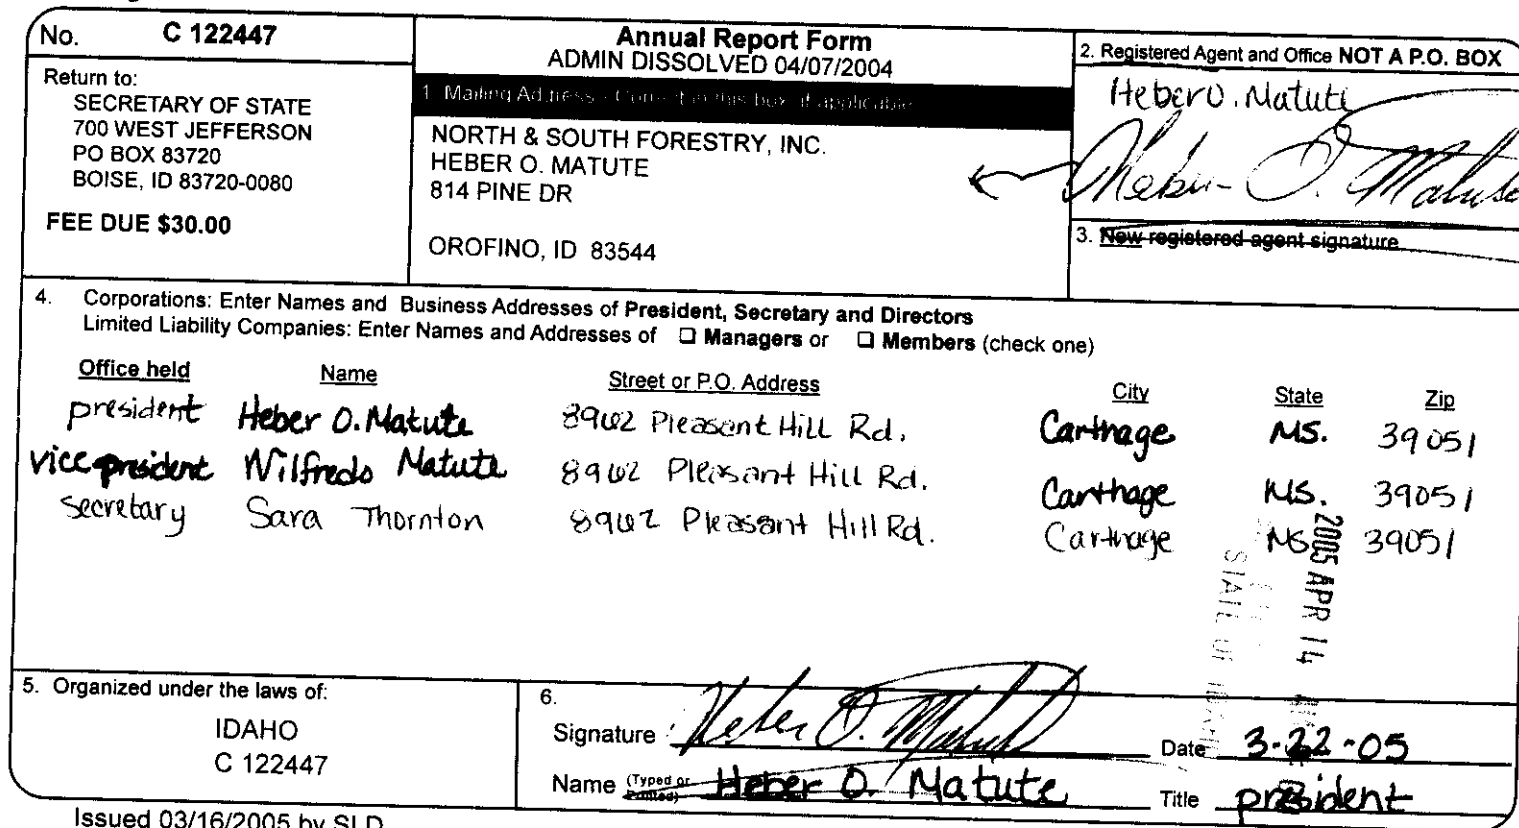 No. C 122447
Return to:
SECRETARY OF STATE
700 WEST JEFFERSON
PO BOX 83720
BOISE, ID 83720-0080
FEE DUE $30.00
Annual Report Form
ADMIN DISSOLVED 04/07/2004
1. Mailing Address - Correct in this box, if applicable
NORTH & SOUTH FORESTRY, INC.
HEBER O. MATUTE
814 PINE DR
OROFINO, ID 83544
2. Registered Agent and Office NOT A P.O. BOX
Heber O. Matute
Heber O. Matute
3. New registered agent signature
4. Corporations: Enter Names and Business Addresses of President, Secretary and Directors
Limited Liability Companies: Enter Names and Addresses of ☐ Managers or ☐ Members (check one)
Office held Name Street or P.O. Address City State Zip
president Heber O. Matute 8962 Pleasant Hill Rd. Carthage MS. 39051
vice president Wilfredo Matute 8962 Pleasant Hill Rd. Carthage MS. 39051
secretary Sara Thornton 8962 Pleasant Hill Rd. Carthage MS 39051
2005 APR 14
STATE OF IDAHO
5. Organized under the laws of:
IDAHO
C 122447
6.
Signature Heber O. Matute Date 3-22-05
Name (Typed or Printed) Heber O. Matute Title president
Issued 03/16/2005 by SLD